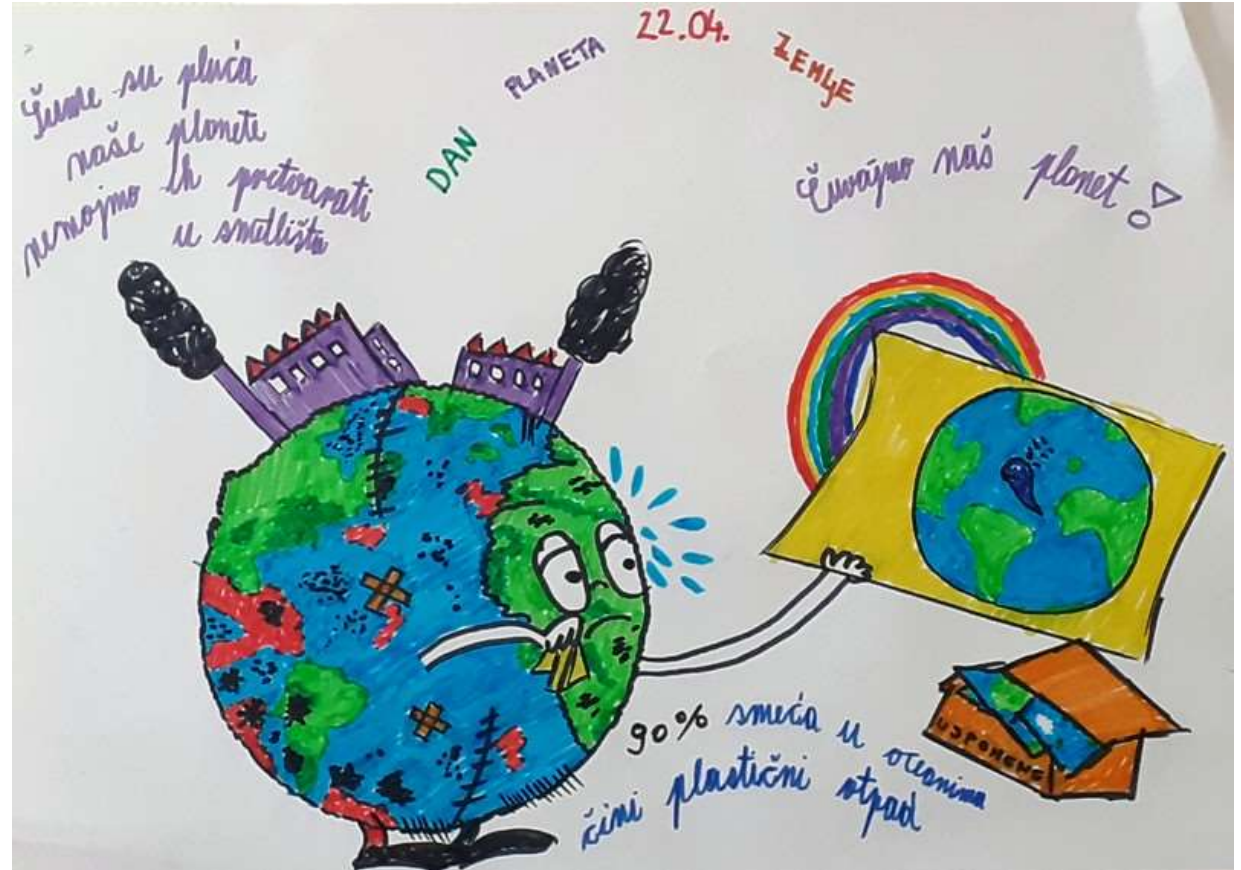 Šume su pluća
naše planete
nemojmo ih pretvarati
u smetlišta
DAN PLANETA 22.04. ZEMLJE
Čuvajmo naš planet!
USPOMENE
90% smeća u oceanima
čini plastični otpad